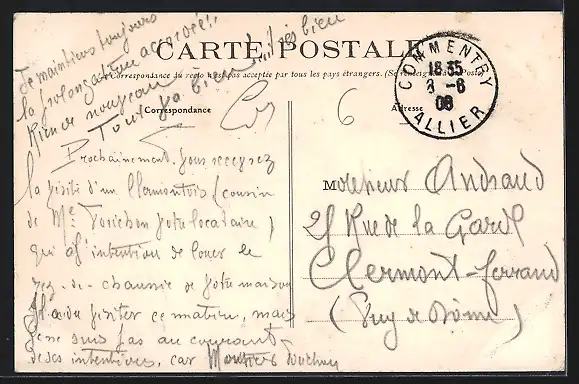 Je maintiens toujours
la prolongation accordée!!
Rien de nouveau
Tout va bien et très bien
CARTE POSTALE
Correspondance au recto n'est pas acceptée par tous les pays étrangers. (Se renseigner à la Poste)
Correspondance
Adresse
6
COMMENTRY
18 35
8 -6
08
ALLIER
Prochainement vous recevrez
la visite d'un Clermontois (cousin
de Me votre locataire)
qui a l'intention de louer le
rez-de-chaussée de votre maison
Il a dû visiter ce matin, mais
je ne suis pas au courant
de ses intentions, car
Monsieur Andraud
25 Rue de la Garde
Clermont-Ferrand
(Puy de Dôme)